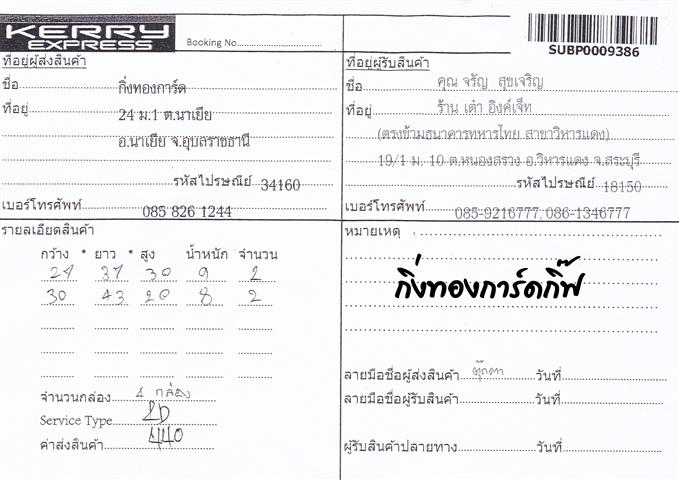 KERRY
EXPRESS
Booking No.
SUBP0009386
ที่อยู่ผู้ส่งสินค้า
ชื่อ กิ่งทองการ์ด
ที่อยู่ 24 ม.1 ต.นาเยีย
อ.นาเยีย จ.อุบลราชธานี
รหัสไปรษณีย์ 34160
เบอร์โทรศัพท์ 085 826 1244
ที่อยู่ผู้รับสินค้า
ชื่อ คุณ จรัญ สุขเจริญ
ที่อยู่ ร้าน เต๋า อิงค์เจ็ท
(ตรงข้ามธนาคารทหารไทย สาขาวิหารแดง)
19/1 ม. 10 ต.หนองสรวง อ.วิหารแดง จ.สระบุรี
รหัสไปรษณีย์ 18150
เบอร์โทรศัพท์ 085-9216777, 086-1346777
รายละเอียดสินค้า
กว้าง * ยาว * สูง น้ำหนัก จำนวน
24 37 30 9 2
30 43 20 8 2
จำนวนกล่อง 4 กล่อง
Service Type 2D
ค่าส่งสินค้า 440
หมายเหตุ :
กิ่งทองการ์ดกิ๊ฟ
ลายมือชื่อผู้ส่งสินค้า ตุ๊กตา วันที่
ลายมือชื่อผู้รับสินค้า วันที่
ผู้รับสินค้าปลายทาง วันที่